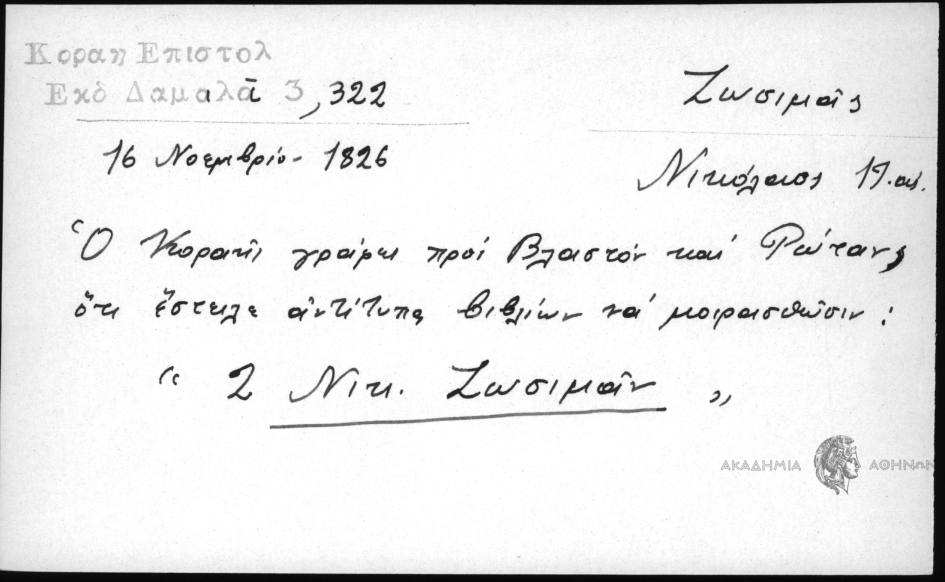 Κοραη Επιστολ
Εκδ Δαμαλᾶ 3,322
Ζωσιμᾶς
16 Νοεμβρίου 1826
Νικόλαος
Ὁ Κοραῆς γράφει πρὸς Βλαστὸν καὶ
ὅτι ἔστειλε ἀντίτυπα βιβλίων νά μοιρασθῶσιν :
“ 2 Νικ. Ζωσιμᾶν „
ΑΚΑΔΗΜΙΑ ΑΘΗΝΩΝ